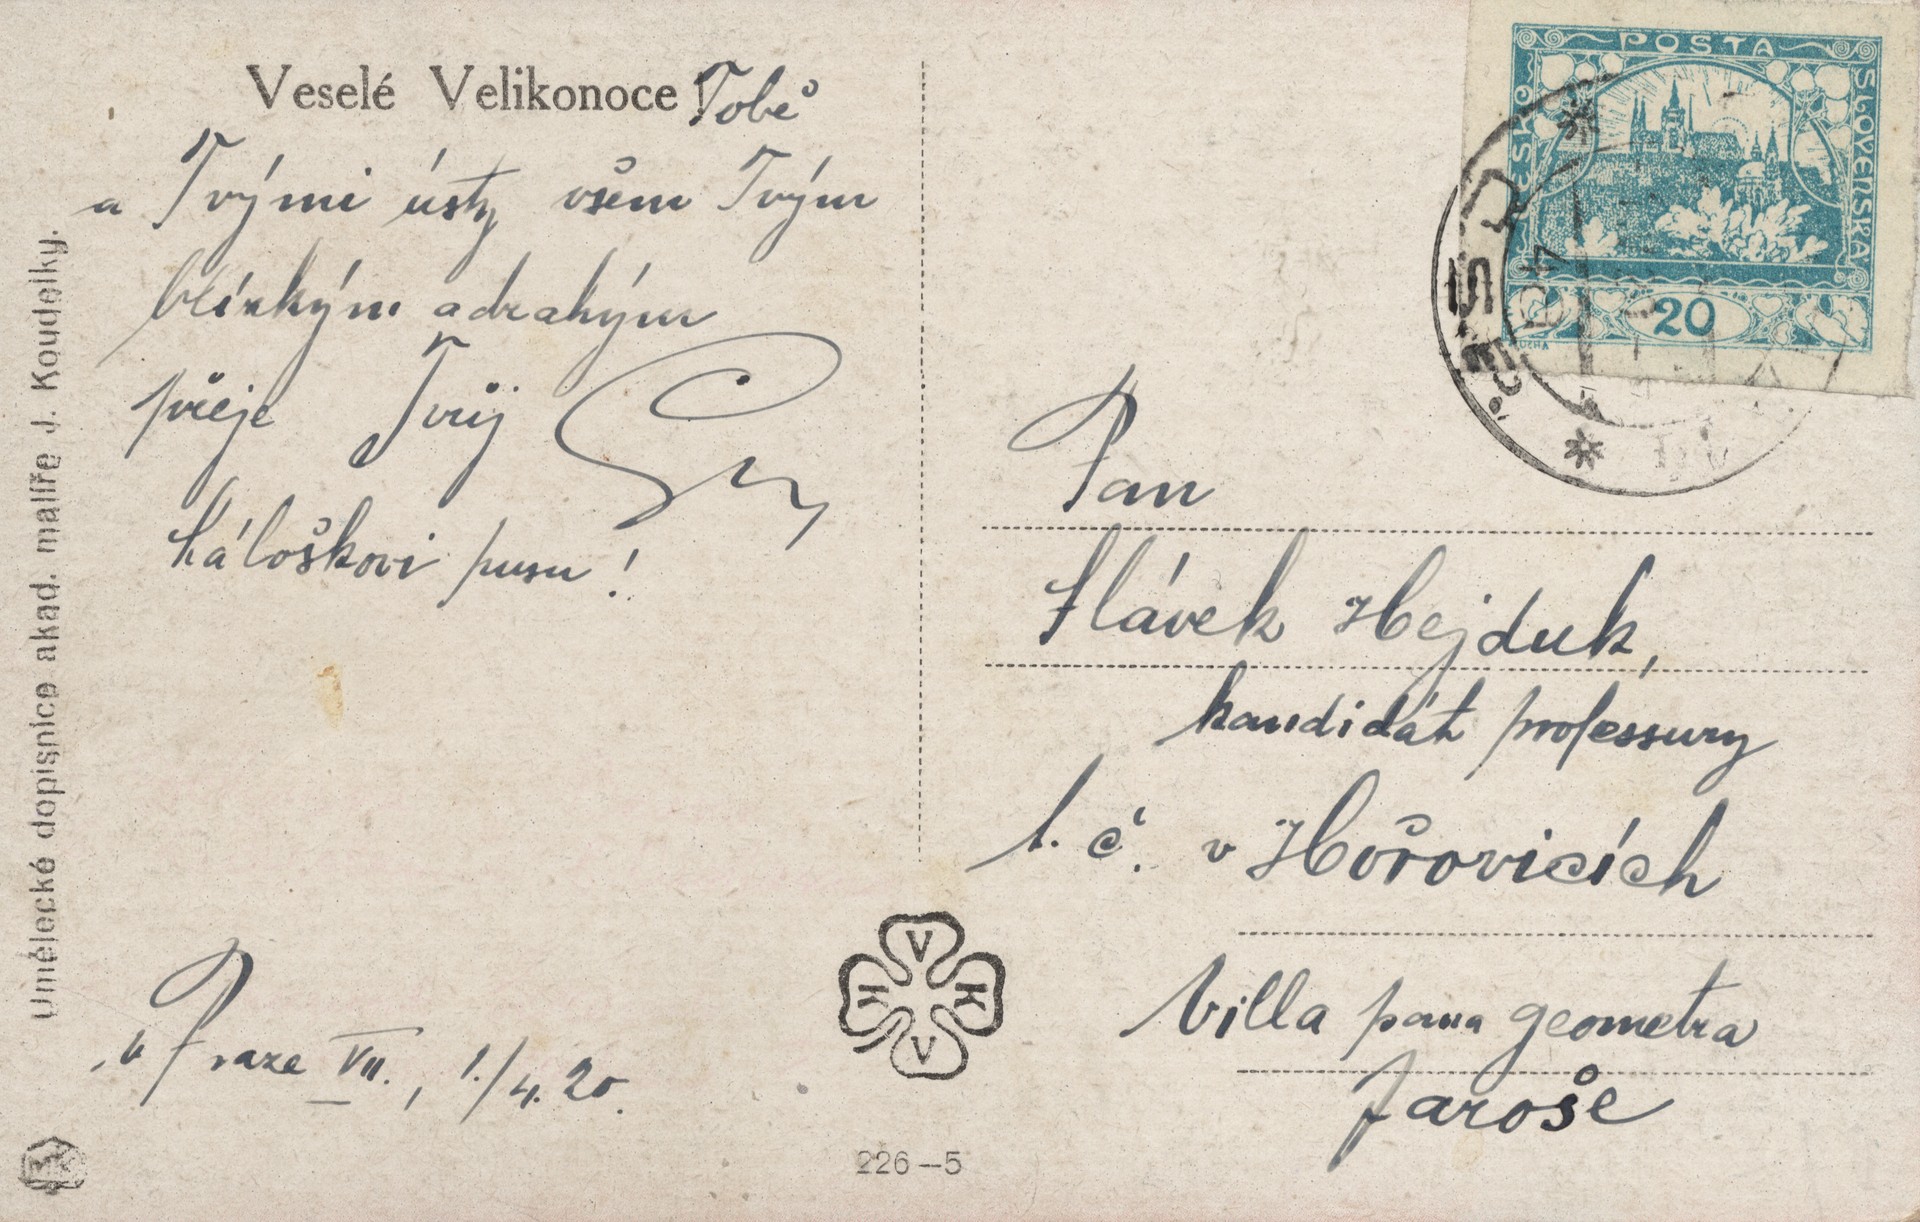 Veselé Velikonoce Tobě
a Tvými ústy všem Tvým
blízkým a drahým
přeje Tvůj
Káloškovi pusu!
v Praze VII., 1./4. 20.
Umělecké dopisnice akad. malíře J. Koudelky.
V
K K
V
226–5
POŠTA
ČESKO
SLOVENSKÁ
20
MUCHA
Pan
Slávek Hejduk,
kandidát professury
t. č. v Hořovicích
Villa pana geometra
Jaroše